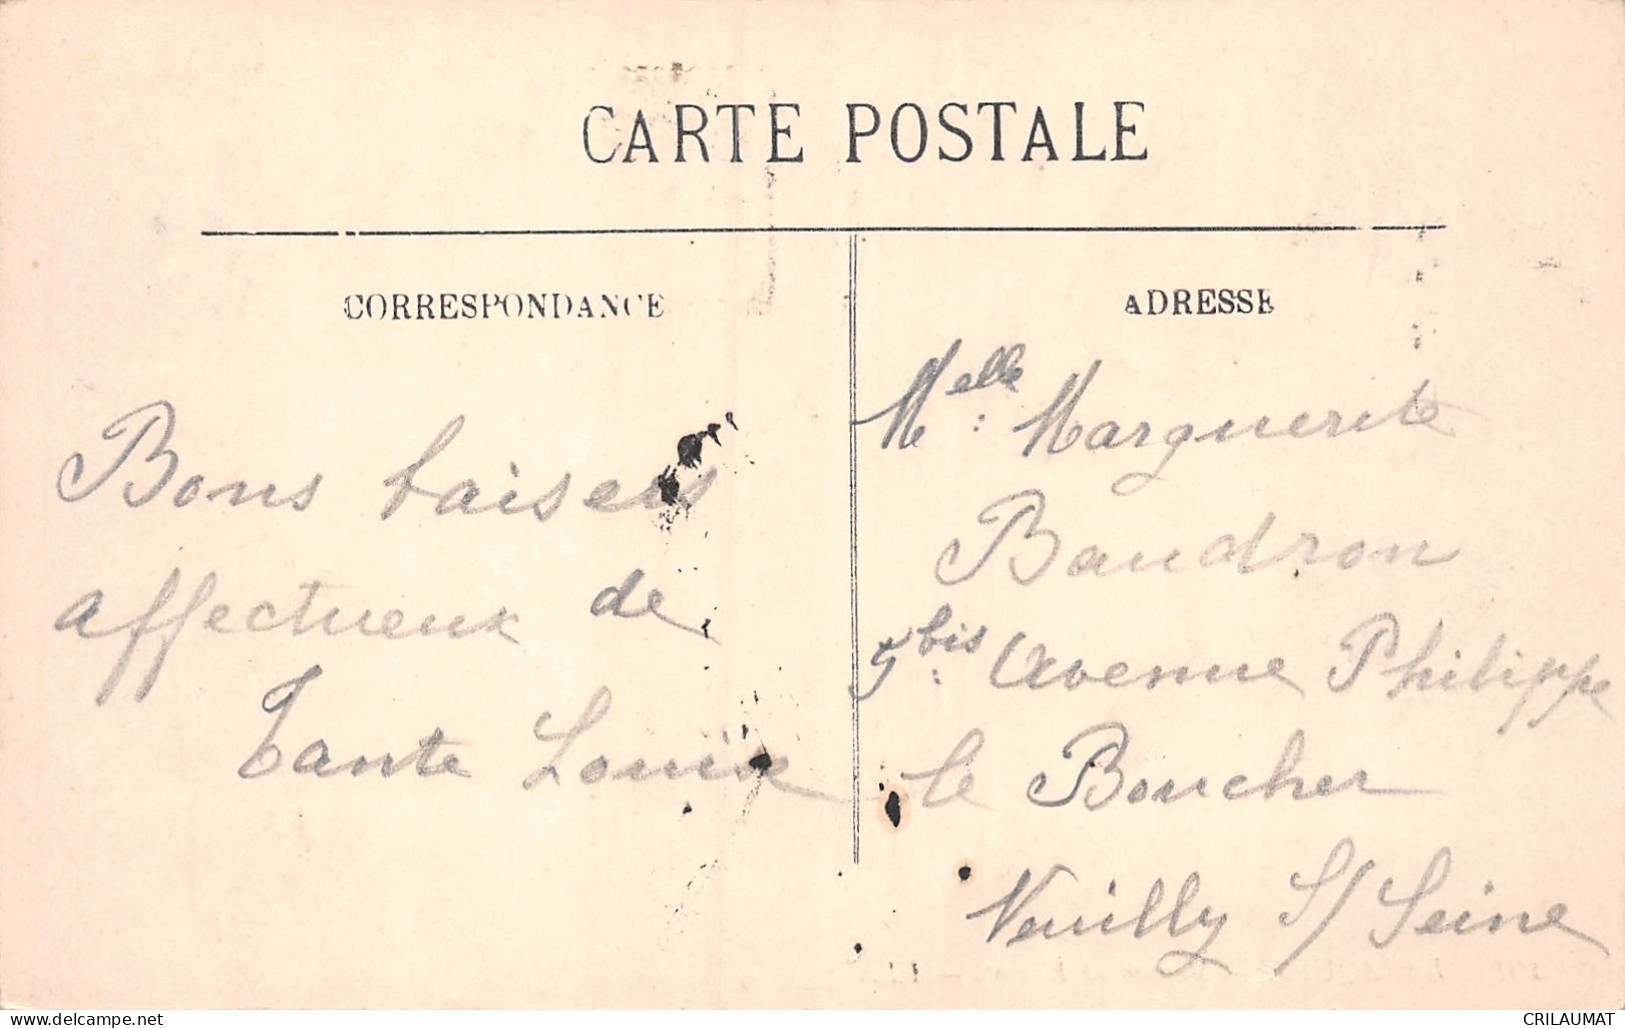 CARTE POSTALE
CORRESPONDANCE
Bons baisers
affectueux de
Tante Louise
ADRESSE
Melle: Marguerite
Baudron
5bis: Avenue Philippe
le Boucher
Neuilly S/ Seine
www.delcampe.net
CRILAUMAT